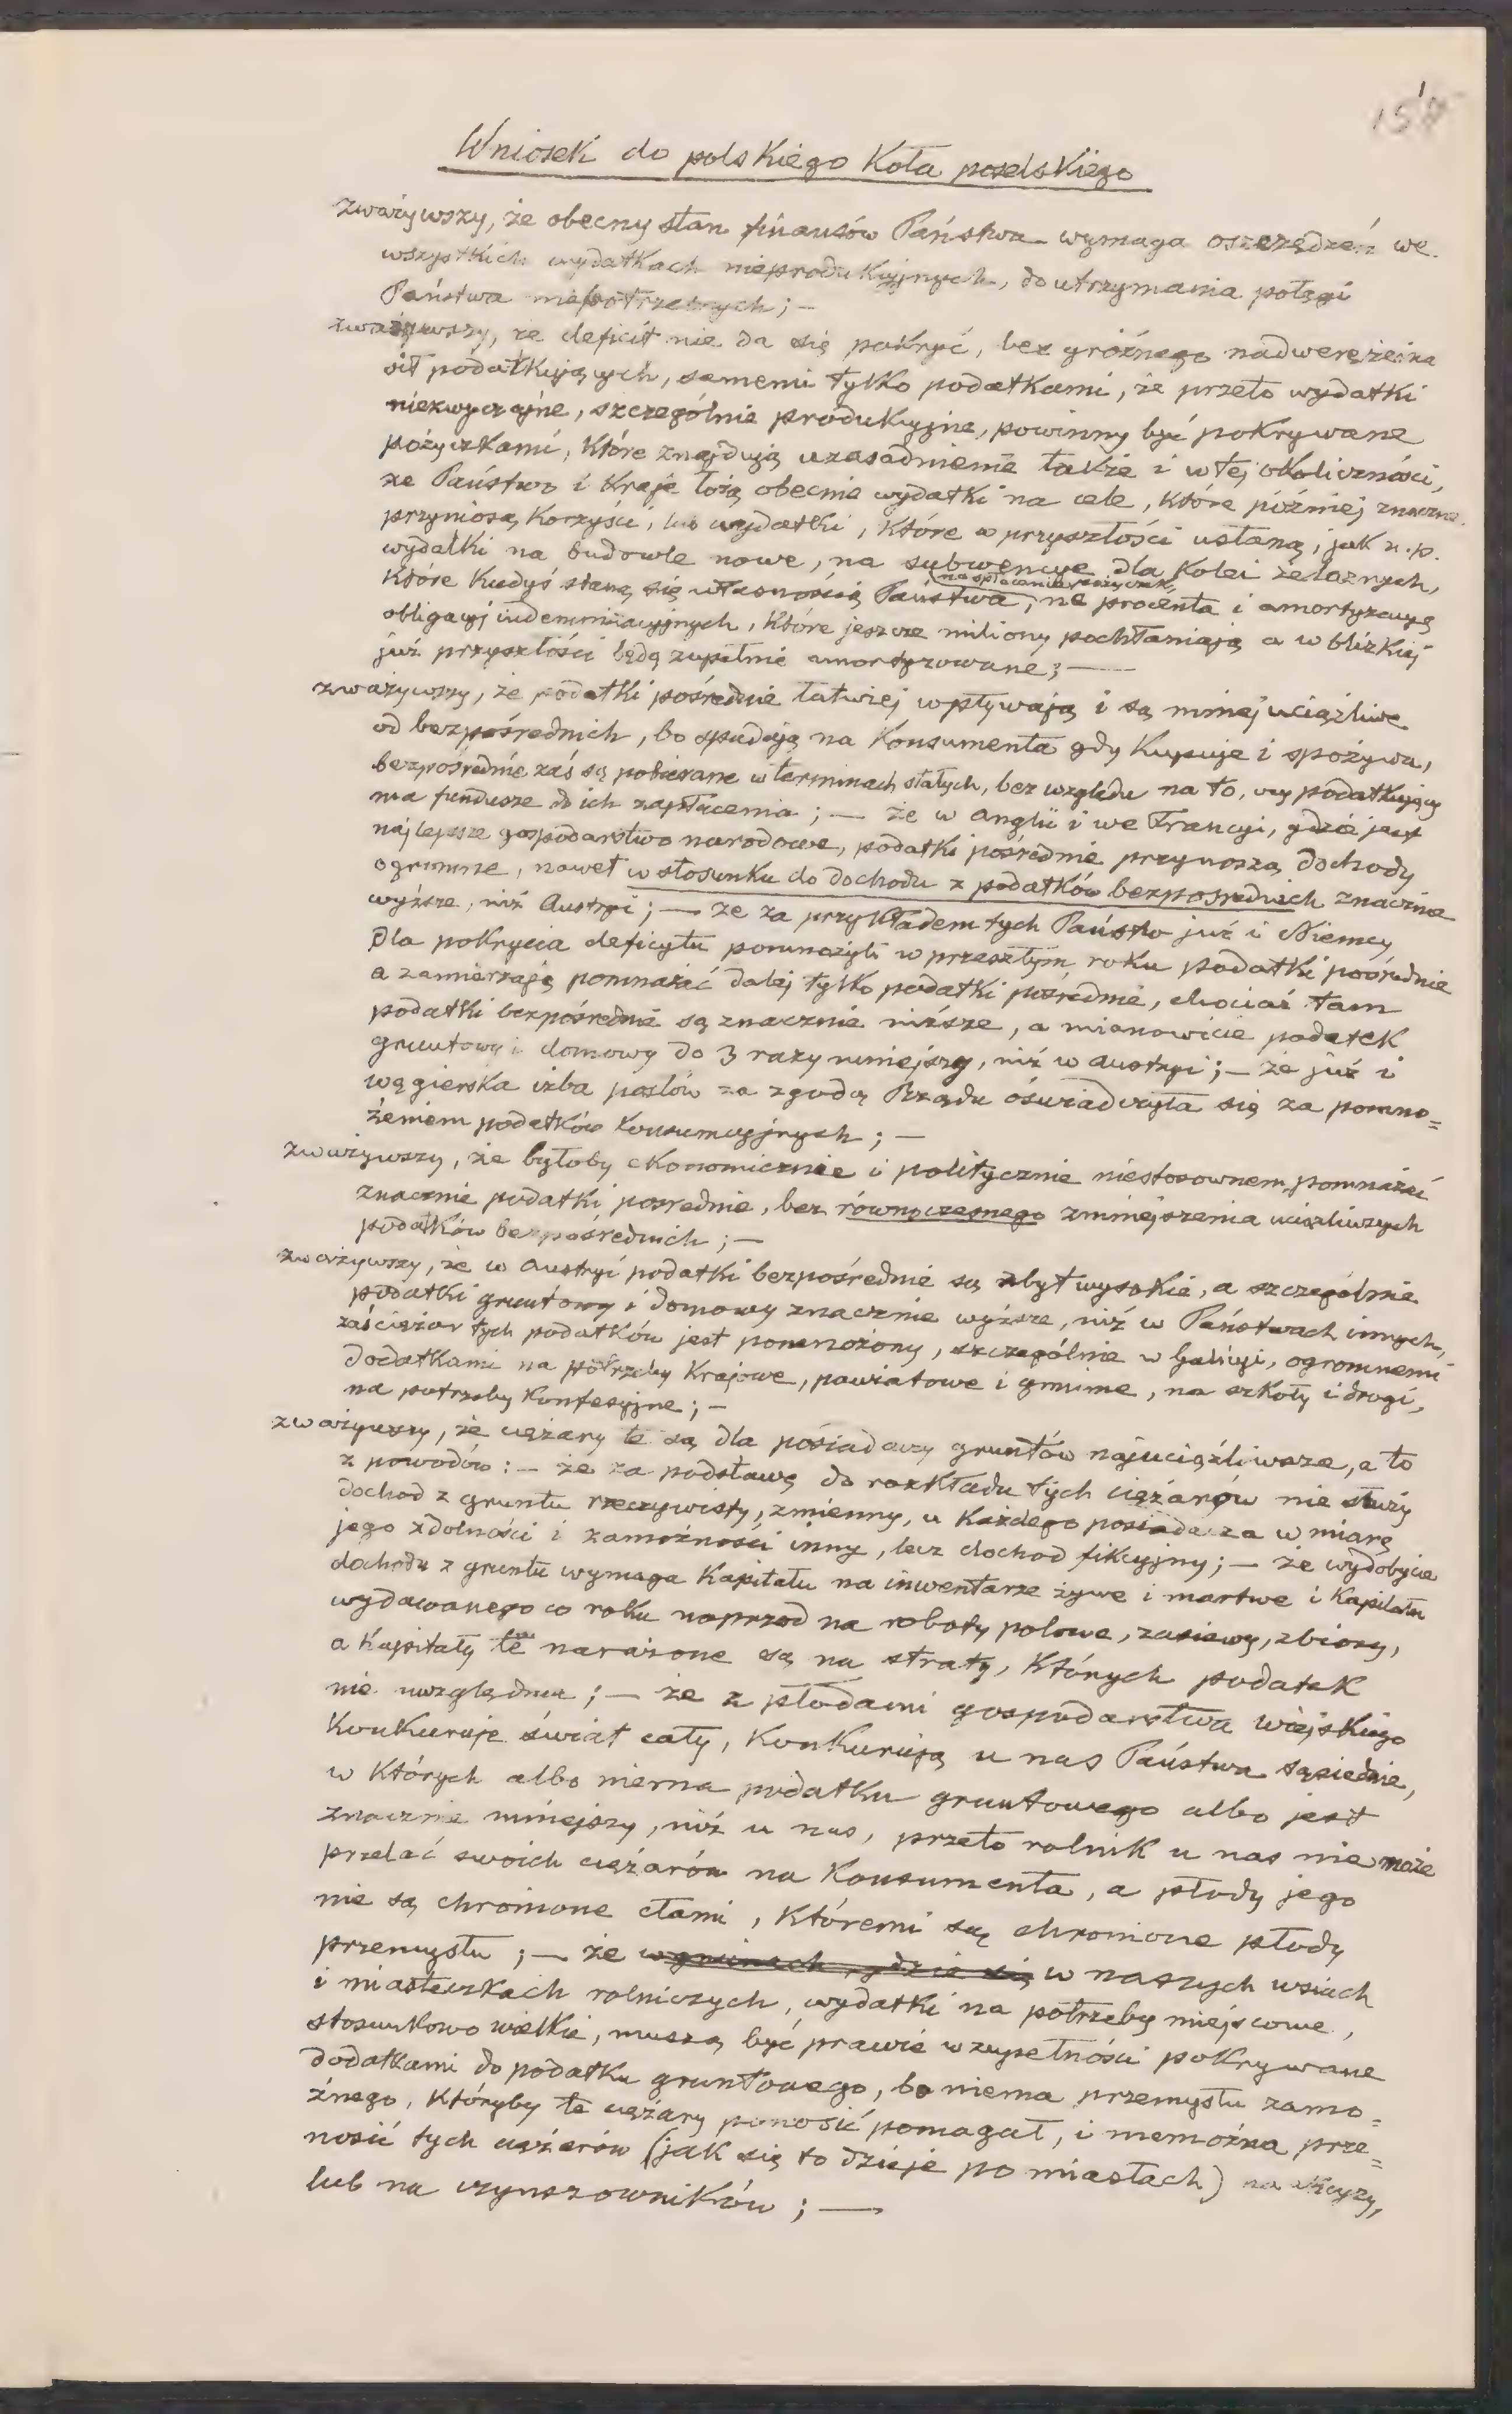 Wniosek do polskiego Koła poselskiego
zważywszy, że obecny stan finansów Państwa wymaga oszczędzeń we
wszystkich wydatkach nieprodukcyjnych, do utrzymania potęgi
Państwa niepotrzebnych; —
zważywszy, że deficit nie da się pokryć, bez groźnego nadwerężenia
sił podatkujących, samemi tylko podatkami, że przeto wydatki
niezwyczajne, szczególnie produkcyjne, powinny być pokrywane
pożyczkami, które znajdują uzasadnienie także i w tej okoliczności,
że Państwo i Kraje łożą obecnie wydatki na cele, które później znaczne
przyniosą korzyści, lub wydatki, które w przyszłości ustaną, jak n.p.
wydatki na budowle nowe, na subwencye dla Kolei żelaznych,
które kiedyś staną się własnością Państwa, na spłacenie pożyczek, na procenta i amortyzacyą
obligacyj indemnizacyjnych, które jeszcze miliony pochłaniają a w blizkiej
już przyszłości będą zupełnie amortyzowane; —
zważywszy, że podatki pośrednie łatwiej wpływają i są mniej uciążliwe
od bezpośrednich, bo spadają na Konsumenta gdy kupuje i spożywa,
bezpośrednie zaś są pobierane w terminach stałych, bez względu na to, czy podatkujący
ma fundusze do ich zapłacenia; — że w Anglii i we Francyi, gdzie jest
najlepsze gospodarstwo narodowe, podatki pośrednie przynoszą dochody
ogromne, nawet w stosunku do dochodu z podatków bezpośrednich znacznie
wyższe, niż Austryi; — że za przykładem tych Państw już i Niemcy
dla pokrycia deficytu pomnożyli w przeszłym roku podatki pośrednie
a zamierzają pomnażać dalej tylko podatki pośrednie, chociaż tam
podatki bezpośrednie są znacznie niższe, a mianowicie podatek
gruntowy i domowy do 3 razy mniejszy, niż w Austryi; — że już i
węgierska izba posłów za zgodą Rządu oświadczyła się za pomno=
żeniem podatków konsumcyjnych; —
zważywszy, że byłoby ekonomicznie i politycznie niestosownem, pomnażać
znacznie podatki pośrednie, bez równoczesnego zmniejszenia uciążliwszych
podatków bezpośrednich; —
zważywszy, że w Austryi podatki bezpośrednie są zbyt wysokie, a szczególnie
podatki gruntowy i domowy znacznie wyższe, niż w Państwach innych,
zaś ciężar tych podatków jest pomnożony, szczególnie w Galicyi, ogromnemi
dodatkami na potrzeby Krajowe, powiatowe i gminne, na szkoły i drogi,
na potrzeby konfesyjne; —
zważywszy, że ciężary te są dla posiadaczy gruntów najuciążliwsze, a to
z powodów: — że za podstawę do rozkładu tych ciężarów nie służy
dochod z gruntu rzeczywisty, zmienny, u każdego posiadacza w miarę
jego zdolności i zamożności inny, lecz dochod fikcyjny; — że wydobycie
dochodu z gruntu wymaga Kapitału na inwentarze żywe i martwe i Kapitału
wydawanego co roku naprzod na roboty polowe, zasiewy, zbiory,
a Kapitały te narażone są na straty, których podatek
nie uwzględnia; — że z płodami gospodarstwa wiejskiego
Konkuruje świat cały, Konkurują u nas Państwa sąsiednie,
w których albo niema podatku gruntowego albo jest
znacznie mniejszy, niż u nas, przeto rolnik u nas nie może
przelać swoich ciężarów na Konsumenta, a płody jego
nie są chronione cłami, któremi są chronione płody
przemysłu; — że w gminach, gdzie się w naszych wsiach
i miasteczkach rolniczych, wydatki na potrzeby miejscowe,
stosunkowo wielkie, muszą być prawie w zupełności pokrywane
dodatkami do podatku gruntowego, bo niema przemysłu zamo=
żnego, któryby te ciężary ponosić pomagał, i niemożna prze=
nosić tych ciężarów (jak się to dzieje po miastach) na
lub na czynszowników; —